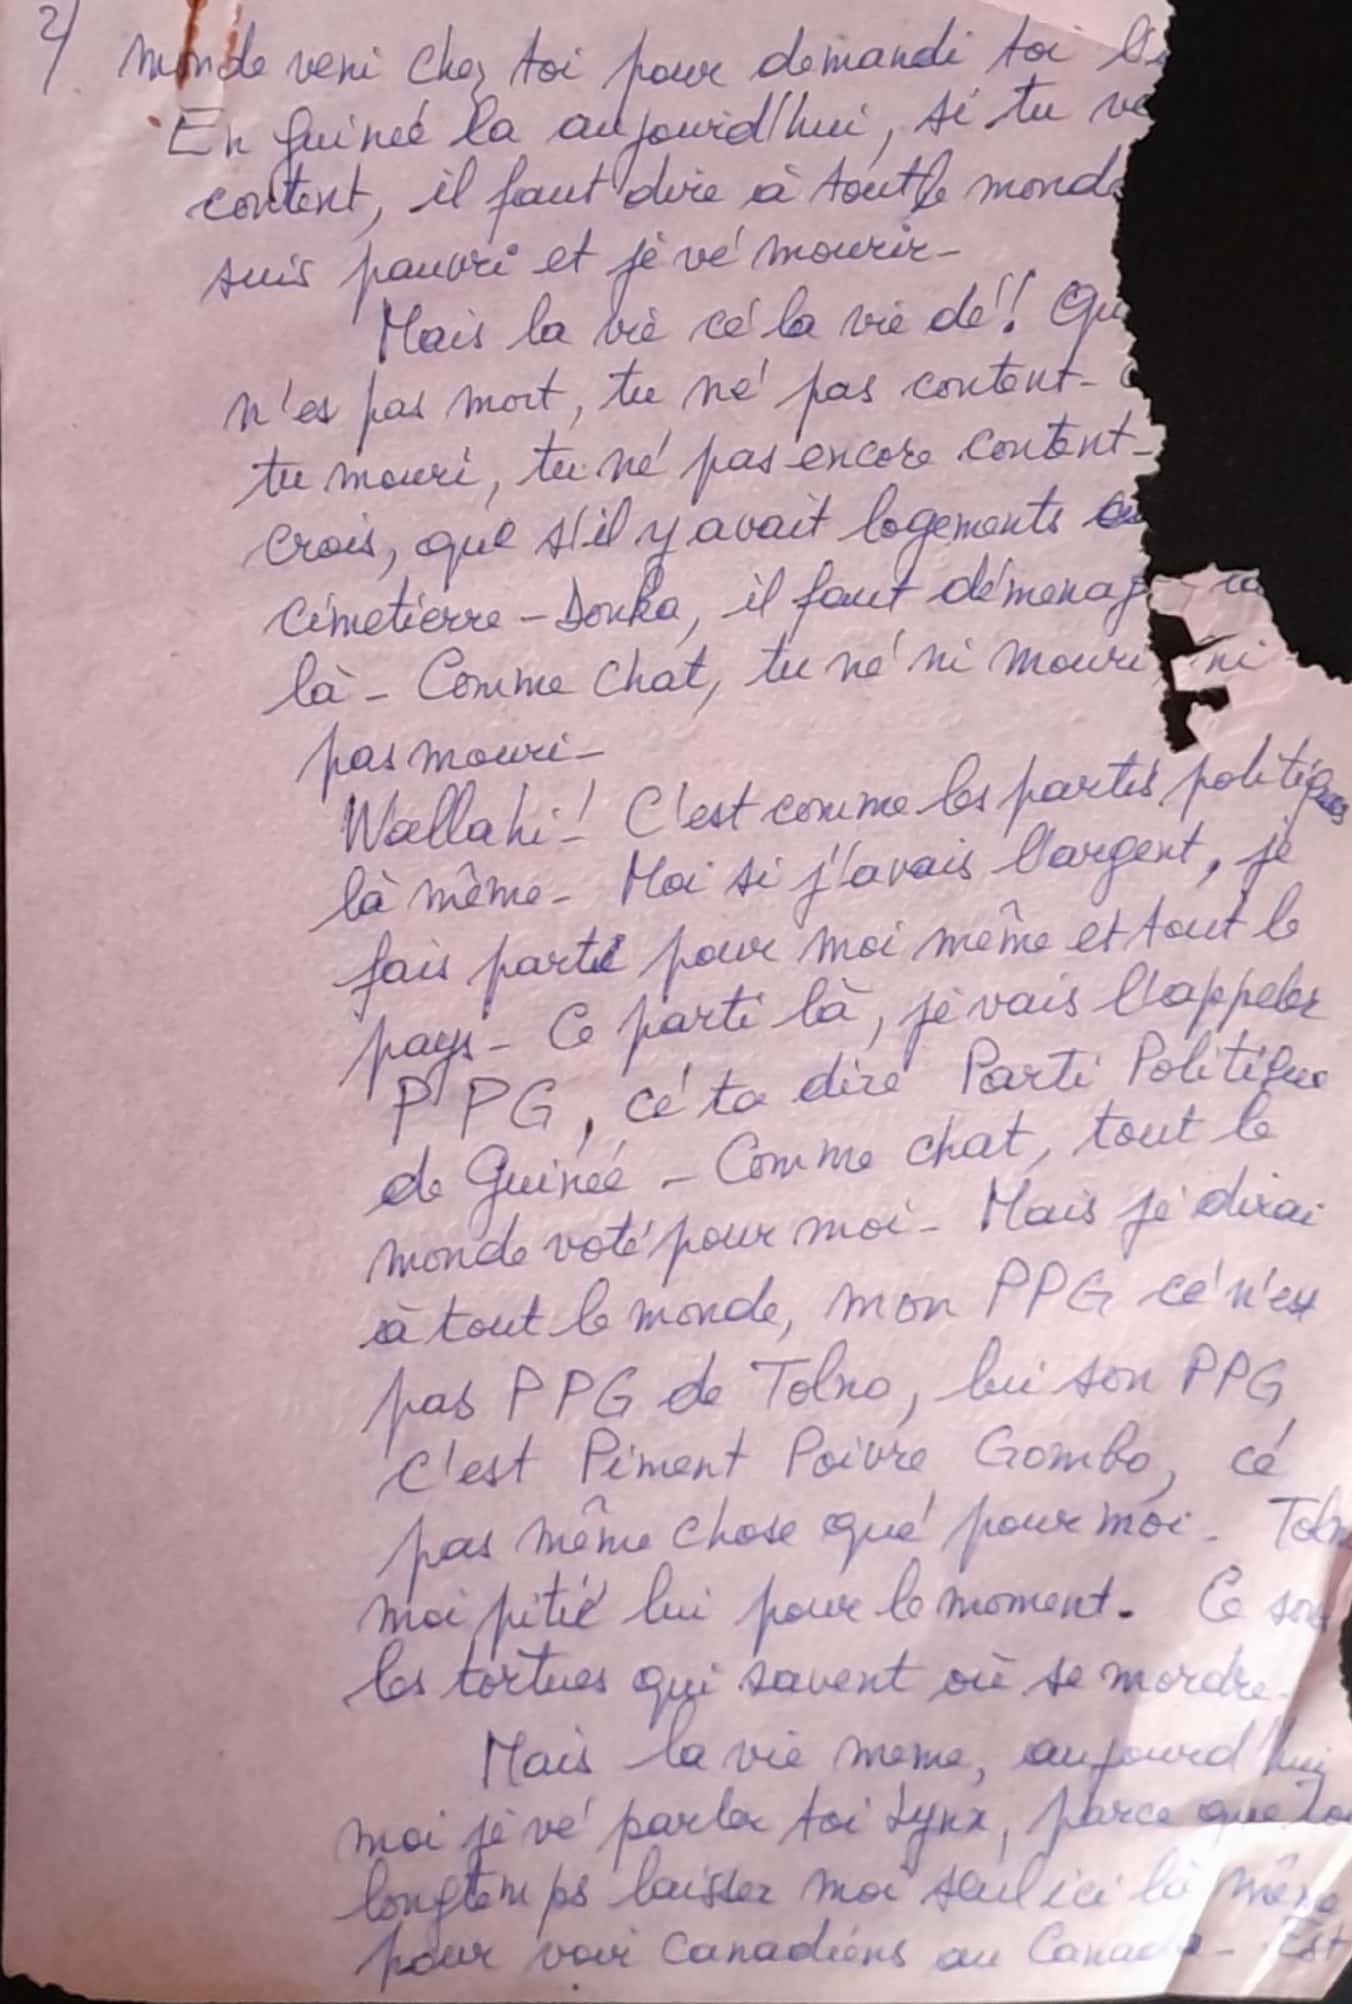 2/ monde veni chez toi pour demandi toi
En Guineé la aujourd'hui, si tu
content, il faut dire à tout le monde
suis pauvri et jé vé mourir-
Mais la vie cé la vie dé!
n'es pas mort, tu né pas content-
tu mouri, tu né pas encore content-
crois, que s'il y avait logements
cimetierre - Donka, il faut démenag
là - Comme chat, tu né ni mouri ni
pas mouri-
Wallahi! C'est comme les partis politiques
là même - Moi si j'avais l'argent, jé
fais parti pour moi même et tout le
pays - Ce parti là, jé vais l'appeler
PPG, cé ta dire Parti Politique
de Guinéé - Comme chat, tout le
monde voté pour moi - Mais jé dirai
à tout le monde, mon PPG cé n'est
pas PPG de Tolno, lui son PPG
c'est Piment Poivre Gombo, cé
pas même chose qué pour moi. Toln
moi pitié lui pour le moment. Ce son
les tortues qui savent où se mordre.
Mais la vie meme, aujourd'hui
moi jé vé parler toi Lynx, parce que toi
longtemps laisser moi seul ici là même
pour voir Canadiens au Canada - Est